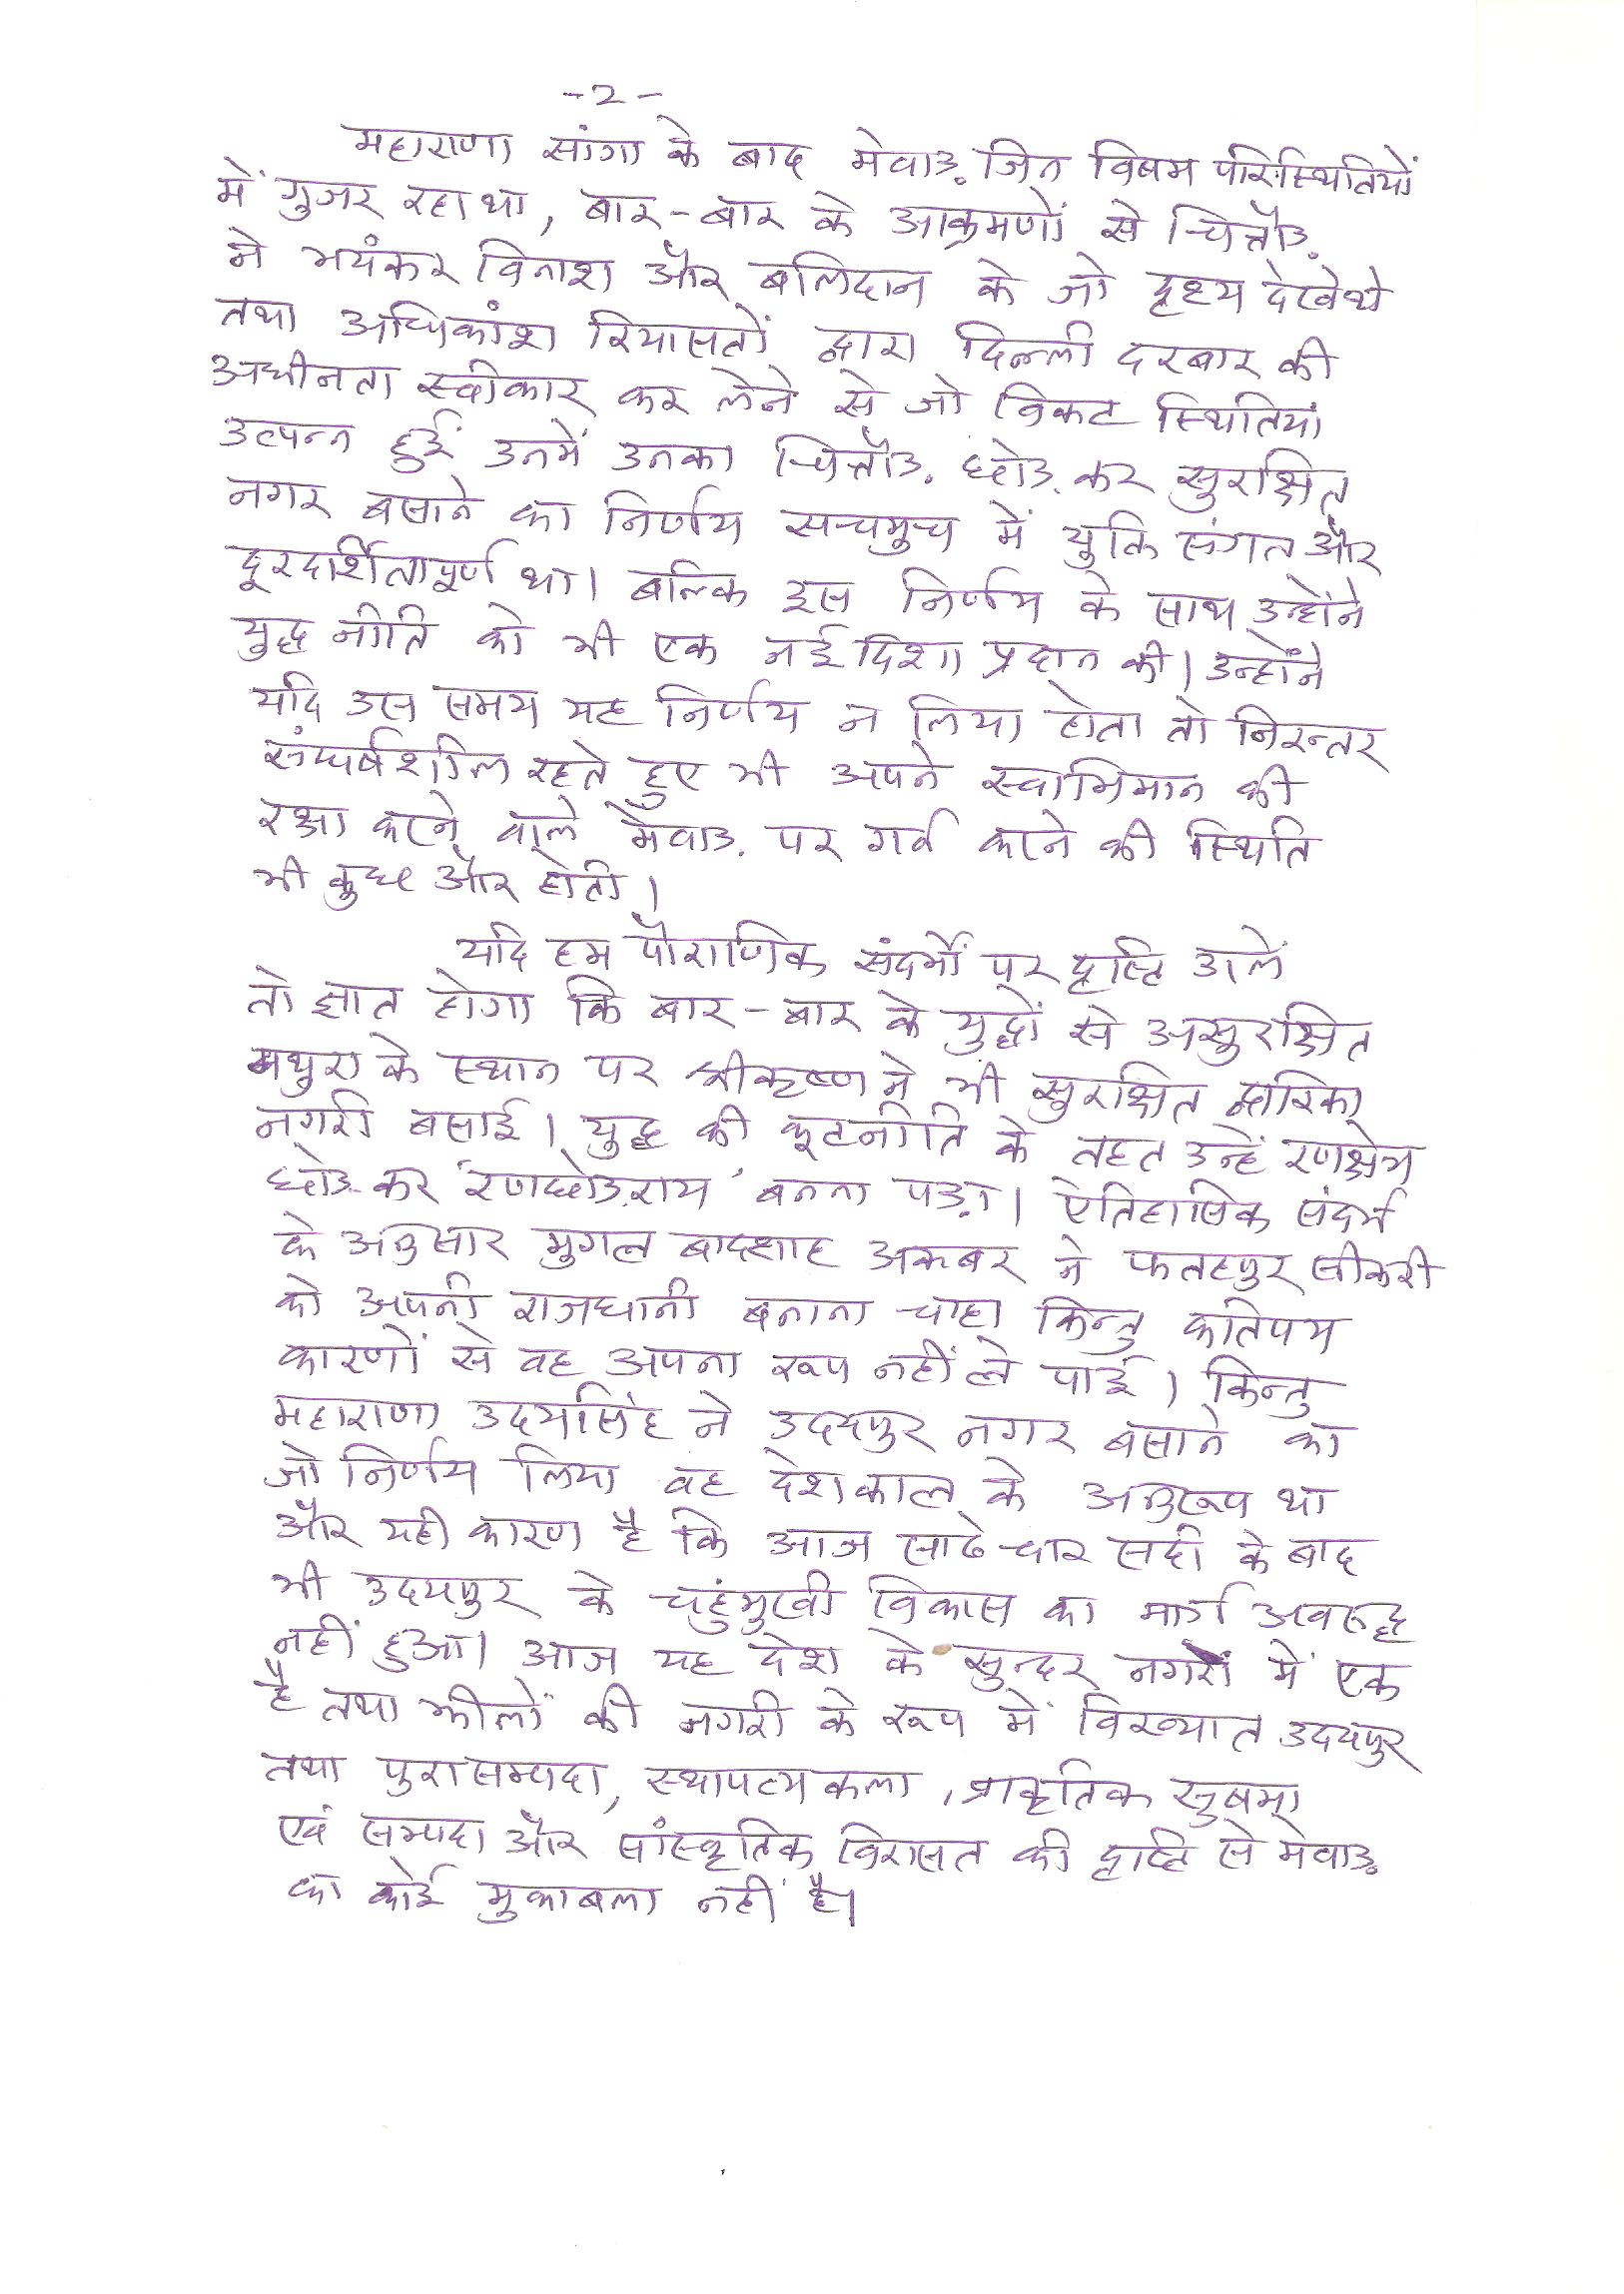 -2-
महाराणा सांगा के बाद मेवाड़ जिन विषम परिस्थितियों
में गुजर रहा था, बार-बार के आक्रमणों से चित्तौड़
ने भयंकर विनाश और बलिदान के जो दृश्य देखे थे
तथा अधिकांश रियासतों द्वारा दिल्ली दरबार की
अधीनता स्वीकार कर लेने से जो विकट स्थितियां
उत्पन्न हुईं उनमें उनका चित्तौड़ छोड़ कर सुरक्षित
नगर बसाने का निर्णय सचमुच में युक्ति संगत और
दूरदर्शितापूर्ण था। बल्कि इस निर्णय के साथ उन्होंने
युद्ध नीति को भी एक नई दिशा प्रदान की। उन्होंने
यदि उस समय यह निर्णय न लिया होता तो निरन्तर
संघर्षशील रहते हुए भी अपने स्वाभिमान की
रक्षा करने वाले मेवाड़ पर गर्व करने की स्थिति
भी कुछ और होती।
यदि हम पौराणिक संदर्भों पर दृष्टि डालें
तो ज्ञात होगा कि बार-बार के युद्धों से असुरक्षित
मथुरा के स्थान पर श्रीकृष्ण ने भी सुरक्षित द्वारिका
नगरी बसाई। युद्ध की कूटनीति के तहत उन्हें रणक्षेत्र
छोड़ कर 'रणछोड़राय' बनना पड़ा। ऐतिहासिक संदर्भ
के अनुसार मुगल बादशाह अकबर ने फतहपुर सीकरी
को अपनी राजधानी बनाना चाहा किन्तु कतिपय
कारणों से वह अपना रूप नहीं ले पाई। किन्तु
महाराणा उदयसिंह ने उदयपुर नगर बसाने का
जो निर्णय लिया वह देशकाल के अनुरूप था
और यही कारण है कि आज साढे चार सदी के बाद
भी उदयपुर के चहुंमुखी विकास का मार्ग अवरूद्ध
नहीं हुआ। आज यह देश के सुन्दर नगरों में एक
है तथा झीलों की नगरी के रूप में विख्यात उदयपुर
तथा पुरासम्पदा, स्थापत्यकला, प्राकृतिक सुषमा
एवं सम्पदा और सांस्कृतिक विरासत की दृष्टि से मेवाड़
का कोई मुकाबला नहीं है।